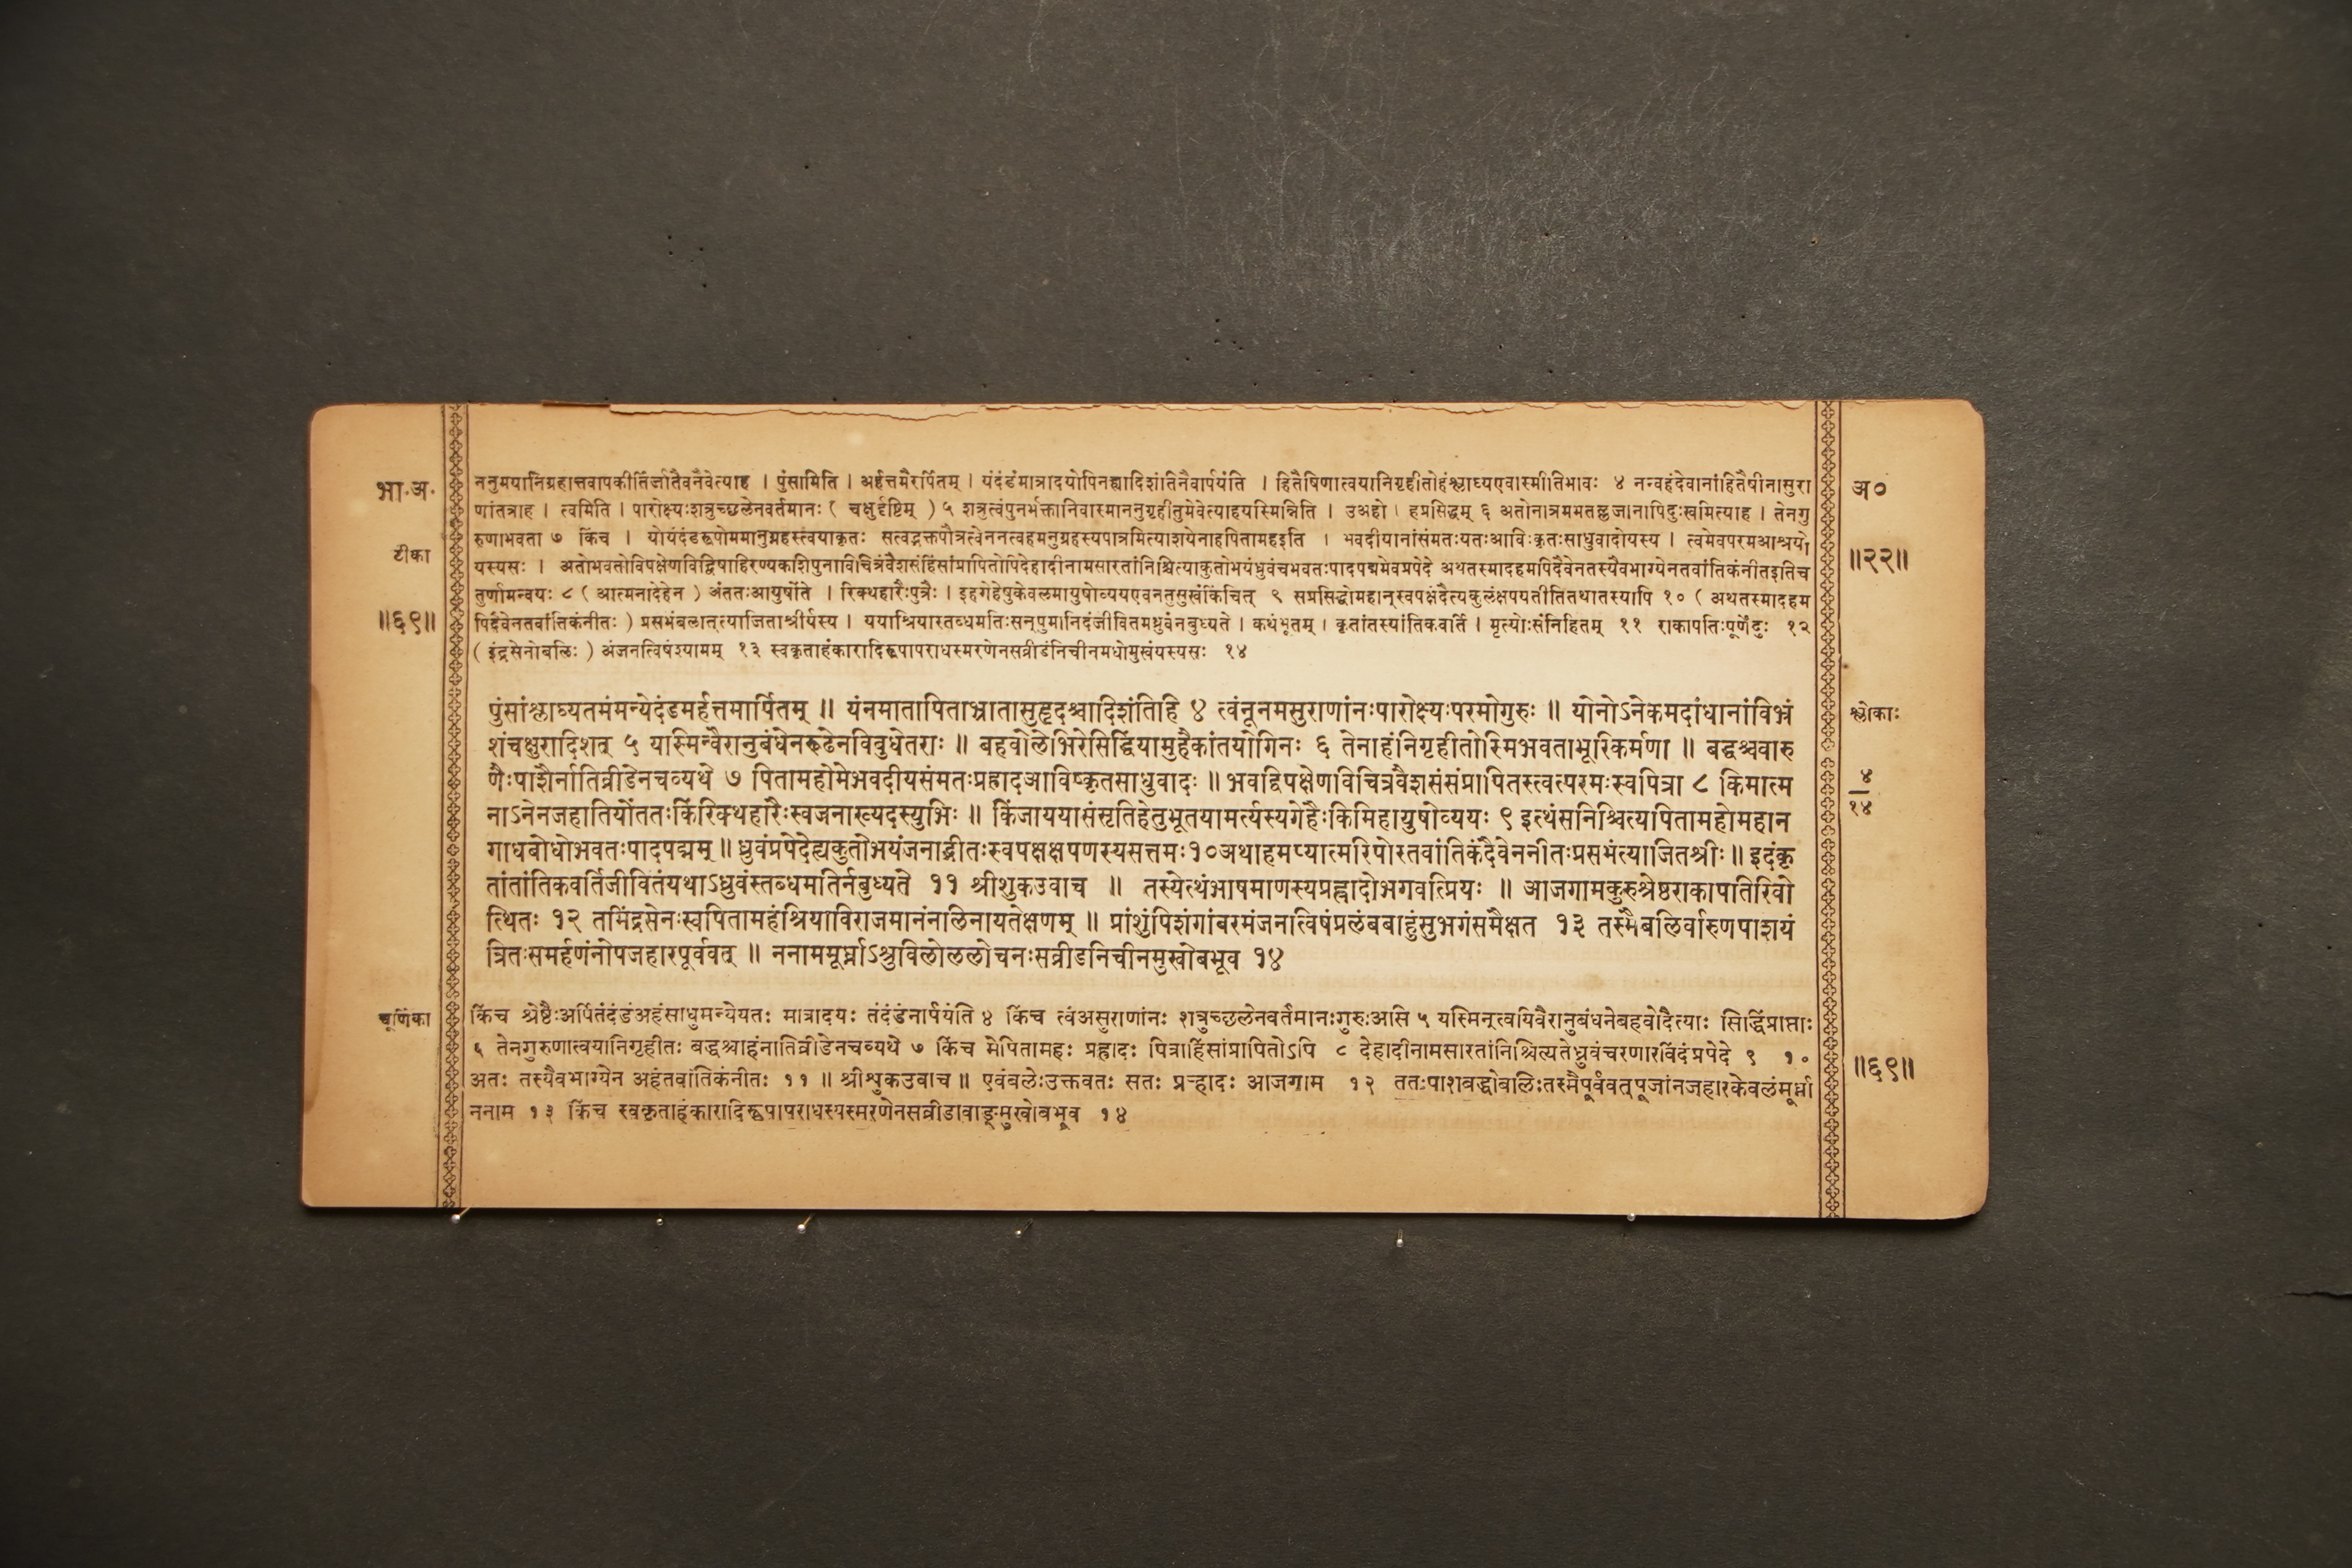 भा.अ.
टीका
॥६९॥
ननुमयानिग्रहात्तवापकीर्तिर्जातैवनैवेत्याह । पुंसामिति । अर्हत्तमैरर्पितम् । यंदंडंमात्रादयोपिनह्यादिशंतिनैवार्पयंति । हितैषिणात्वयानिगृहीतोहंश्लाघ्यएवास्मीतिभावः ४ नन्वहंदेवानांहितैषीनासुरा
णांतत्राह । त्वमिति । पारोक्ष्यःशत्रुच्छलेनवर्तमानः ( चक्षुर्दृष्टिम् ) ५ शत्रुत्वंपुनर्भक्तानिवास्माननुगृहीतुमेवेत्याहयस्मिन्निति । उअहो । हप्रसिद्धम् ६ अतोनात्रममतल्लजानापिदुःखमित्याह । तेनगु
रुणाभवता ७ किंच । योयंदंडरूपोममानुग्रहस्त्वयाकृतः सत्वद्भक्तपौत्रत्वेननत्वहमनुग्रहस्यपात्रमित्याशयेनाहपितामहइति । भवदीयानांसंमतःयतःआविःकृतःसाधुवादोयस्य । त्वमेवपरमआश्रयो
यस्यसः । अतोभवतोविपक्षेणविद्विषाहिरण्यकशिपुनाविचित्रंवैशसंहिंसांप्रापितोपिदेहादीनामसारतांनिश्चित्याकुतोभयंध्रुवंचभवतःपादपद्ममेवप्रपेदे अथतस्मादहमपिदैवेनतस्यैवभाग्येनतवांतिकंनीतइतिच
तुर्णामन्वयः ८ ( आत्मनादेहेन ) अंततःआयुषोंते । रिक्थहारैःपुत्रैः । इहगेहेषुकेवलमायुषोव्ययएवनतुसुखंकिंचित् ९ सप्रसिद्धोमहान्स्वपक्षंदैत्यकुलंक्षपयतीतितथातस्यापि १० ( अथतस्मादहम
पिदैवेनतवांतिकंनीतः ) प्रसभंबलात्त्याजिताश्रीर्यस्य । ययाश्रियास्तब्धमतिःसन्पुमानिदंजीवितमध्रुवंनबुध्यते । कथंभूतम् । कृतांतस्यांतिकवर्ति । मृत्योःसंनिहितम् ११ राकापतिःपूर्णेंदुः १२
( इंद्रसेनोबलिः ) अंजनत्विषंश्यामम् १३ स्वकृताहंकारादिरूपापराधस्मरणेनसव्रीडंनिचीनमधोमुखंयस्यसः १४
पुंसांश्लाघ्यतमंमन्येदंडमर्हत्तमार्पितम् ॥ यंनमातापिताभ्रातासुहृदश्चादिशंतिहि ४ त्वंनूनमसुराणांनःपारोक्ष्यःपरमोगुरुः ॥ योनोऽनेकमदांधानांविभ्रं
शंचक्षुरादिशत् ५ यस्मिन्वैरानुबंधेनरूढेनविबुधेतराः ॥ बहवोलेभिरेसिद्धिंयामुहैकांतयोगिनः ६ तेनाहंनिगृहीतोस्मिभवताभूरिकर्मणा ॥ बद्धश्चवारु
णैःपाशैर्नातिव्रीडेनचव्यथे ७ पितामहोमेभवदीयसंमतःप्रह्रादआविष्कृतसाधुवादः ॥ भवद्विपक्षेणविचित्रवैशसंसंप्रापितस्त्वत्परमःस्वपित्रा ८ किमात्म
नाऽनेनजहातियोंततःकिंरिक्थहारैःस्वजनाख्यदस्युभिः ॥ किंजाययासंसृतिहेतुभूतयामर्त्यस्यगेहैःकिमिहायुषोव्ययः ९ इत्थंसनिश्चित्यपितामहोमहान
गाधबोधोभवतःपादपद्मम् ॥ ध्रुवंप्रपेदेह्यकुतोभयंजनाद्भीतःस्वपक्षक्षपणस्यसत्तमः१०अथाहमप्यात्मरिपोस्तवांतिकंदैवेननीतःप्रसभंत्याजितश्रीः ॥ इदंकृ
तांतांतिकवर्तिजीवितंयथाऽध्रुवंस्तब्धमतिर्नबुध्यते ११ श्रीशुकउवाच ॥ तस्येत्थंभाषमाणस्यप्रह्लादोभगवत्प्रियः ॥ आजगामकुरुश्रेष्ठराकापतिरिवो
त्थितः १२ तमिंद्रसेनःस्वपितामहंश्रियाविराजमानंनलिनायतेक्षणम् ॥ प्रांशुंपिशंगांबरमंजनत्विषंप्रलंबबाहुंसुभगंसमैक्षत १३ तस्मैबलिर्वारुणपाशयं
त्रितःसमर्हणंनोपजहारपूर्ववत् ॥ ननाममूर्ध्नाऽश्रुविलोललोचनःसव्रीडनिचीनमुखोबभूव १४
चूर्णिका
किंच श्रेष्ठैःअर्पितंदंडंअहंसाधुमन्येयतः मात्रादयः तंदंडंनार्पयंति ४ किंच त्वंअसुराणांनः शत्रुच्छलेनवर्तमानःगुरुःअसि ५ यस्मिन्त्वयिवैरानुबंधनेबहवोदैत्याः सिद्धिंप्राप्ताः
६ तेनगुरुणात्वयानिगृहीतः बद्धश्चाहंनातिव्रीडेनचव्यथे ७ किंच मेपितामहः प्रह्लादः पित्राहिंसांप्रापितोऽपि ८ देहादीनामसारतांनिश्चित्यतेध्रुवंचरणारविंदंप्रपेदे ९ १०
अतः तस्यैवभाग्येन अहंतवांतिकंनीतः ११ ॥ श्रीशुकउवाच ॥ एवंबलेःउक्तवतः सतः प्रऱ्हादः आजगाम १२ ततःपाशबद्धोबलिःतस्मैपूर्ववत्पूजांनजहारकेवलंमूर्ध्ना
ननाम १३ किंच स्वकृताहंकारादिरूपापराधस्यस्मरणेनसव्रीडावाङ्मुखोबभूव १४
अ०
॥२२॥
श्लोकाः
४
१४
॥६९॥